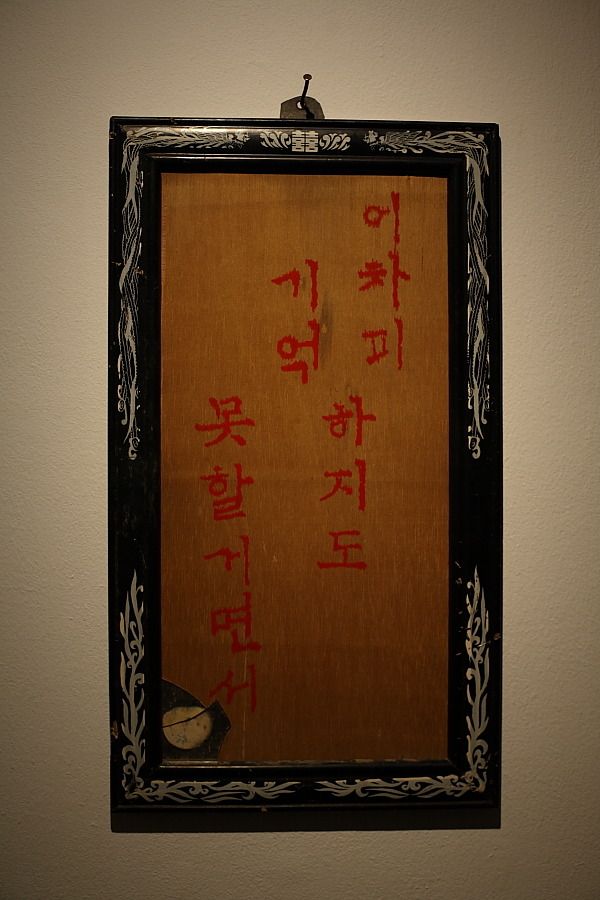 어차피
기억
하지도
못할거면서